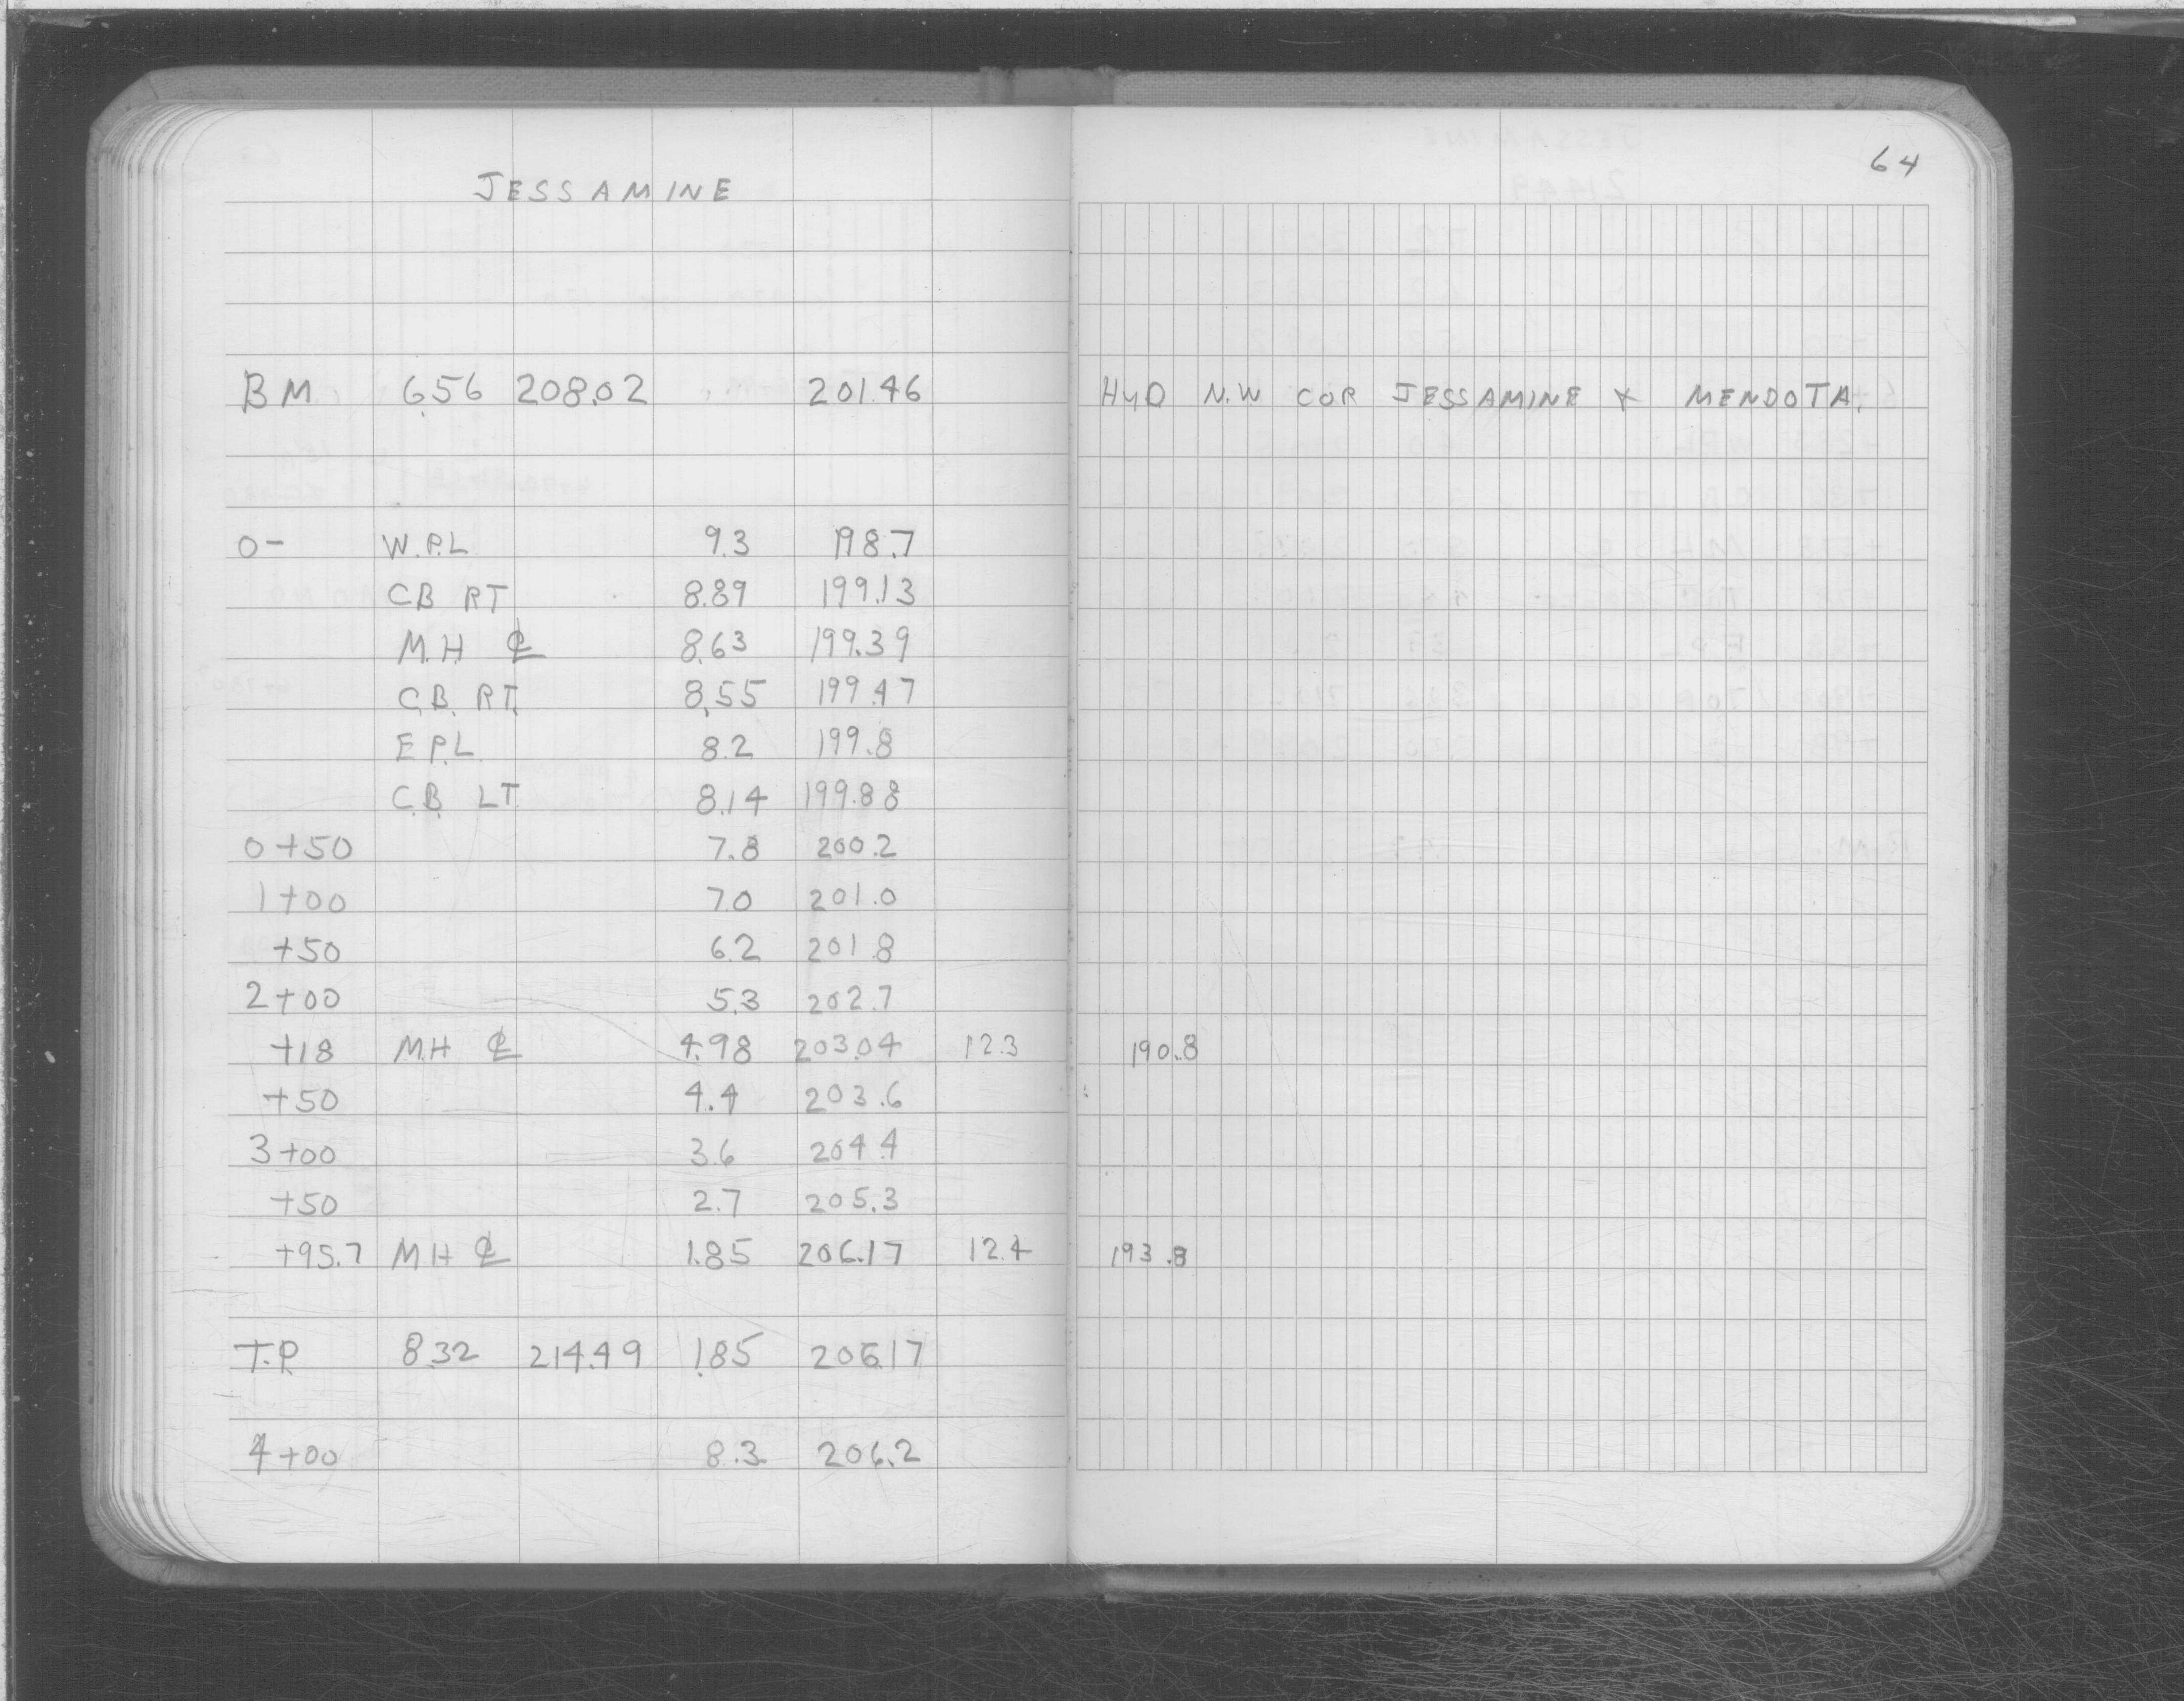 64
JESSAMINE
BM 6.56 208.02 201.46 HYD N.W COR JESSAMINE & MENDOTA.
0- W.P.L 9.3 198.7
CB RT 8.89 199.13
M.H ℄ 8.63 199.39
C.B. RT. 8.55 199.47
E P.L. 8.2 199.8
C.B. LT 8.14 199.88
0+50 7.8 200.2
1+00 7.0 201.0
+50 6.2 201.8
2+00 5.3 202.7
+18 M.H ℄ 4.98 203.04 12.3 190.8
+50 4.4 203.6
3+00 3.6 204.4
+50 2.7 205.3
+95.7 MH ℄ 1.85 206.17 12.4 193.8
T.P. 8.32 214.49 1.85 206.17
4+00 8.3 206.2